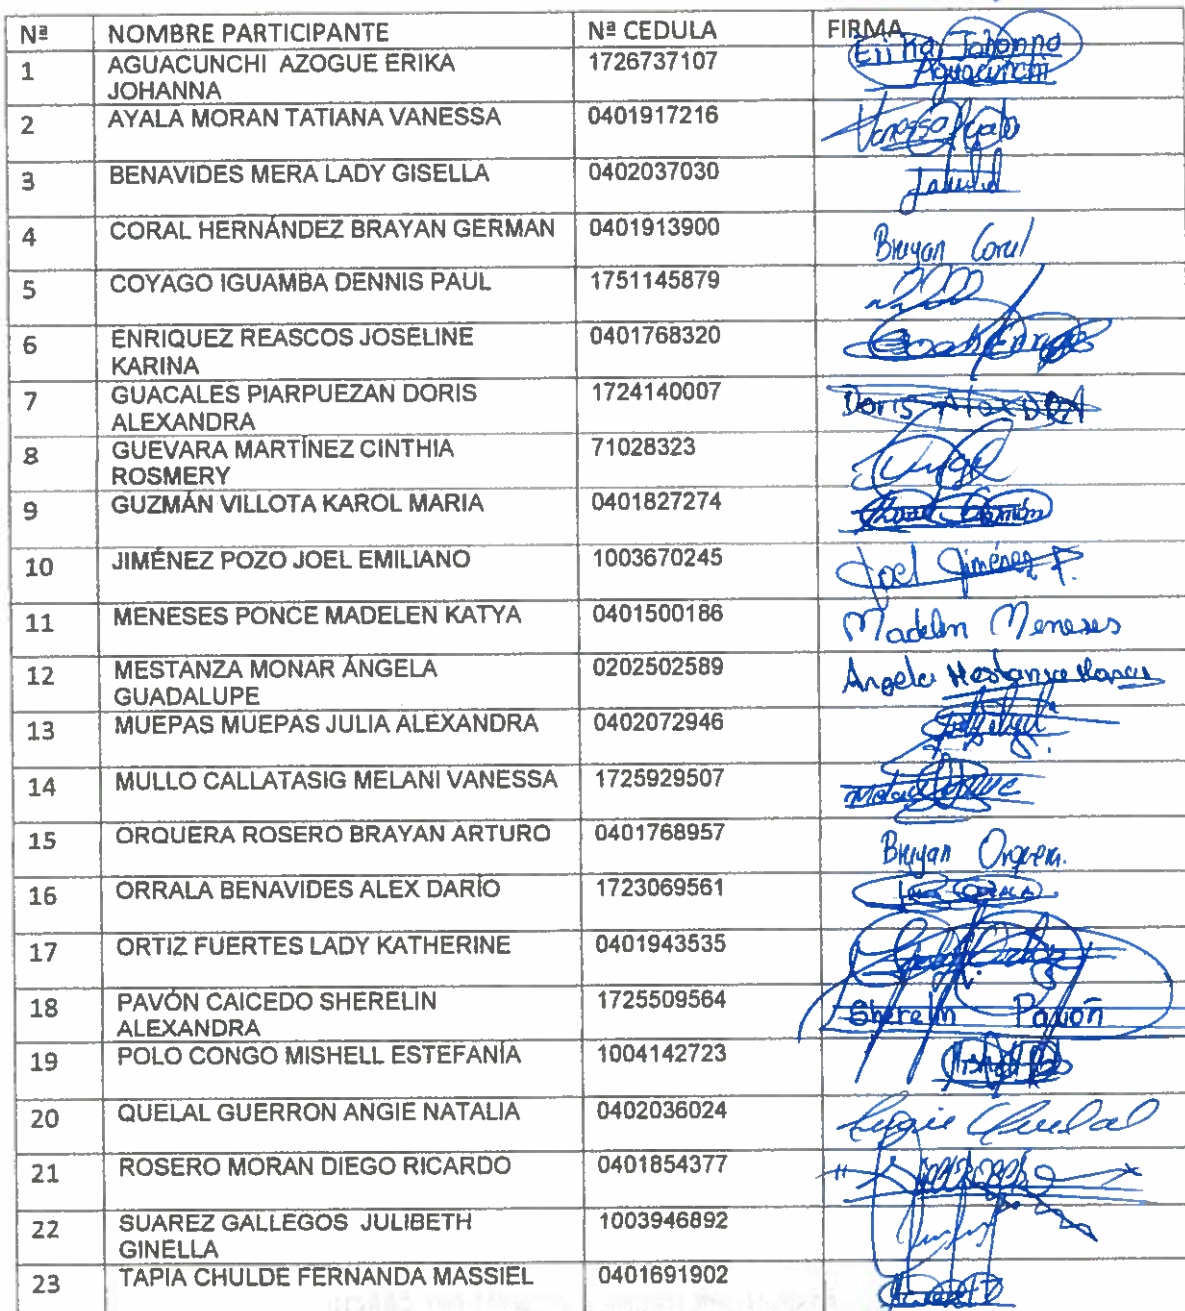 Nª NOMBRE PARTICIPANTE Nª CEDULA FIRMA
1 AGUACUNCHI AZOGUE ERIKA 1726737107 Erika Johanna
JOHANNA Aguacunchi
2 AYALA MORAN TATIANA VANESSA 0401917216 Vanessa Ayala
3 BENAVIDES MERA LADY GISELLA 0402037030
4 CORAL HERNÁNDEZ BRAYAN GERMAN 0401913900 Brayan Coral
5 COYAGO IGUAMBA DENNIS PAUL 1751145879
6 ENRIQUEZ REASCOS JOSELINE 0401768320
KARINA
7 GUACALES PIARPUEZAN DORIS 1724140007 Doris
ALEXANDRA
8 GUEVARA MARTÍNEZ CINTHIA 71028323
ROSMERY
9 GUZMÁN VILLOTA KAROL MARIA 0401827274
10 JIMÉNEZ POZO JOEL EMILIANO 1003670245 Joel Jiménez P.
11 MENESES PONCE MADELEN KATYA 0401500186 Madelen Meneses
12 MESTANZA MONAR ÁNGELA 0202502589 Angela Mestanza Monar
GUADALUPE
13 MUEPAS MUEPAS JULIA ALEXANDRA 0402072946
14 MULLO CALLATASIG MELANI VANESSA 1725929507
15 ORQUERA ROSERO BRAYAN ARTURO 0401768957 Brayan Orquera.
16 ORRALA BENAVIDES ALEX DARÍO 1723069561
17 ORTIZ FUERTES LADY KATHERINE 0401943535
18 PAVÓN CAICEDO SHERELIN 1725509564 Sherelin Pavón
ALEXANDRA
19 POLO CONGO MISHELL ESTEFANÍA 1004142723
20 QUELAL GUERRON ANGIE NATALIA 0402036024 Angie Quelal
21 ROSERO MORAN DIEGO RICARDO 0401854377
22 SUAREZ GALLEGOS JULIBETH 1003946892
GINELLA
23 TAPIA CHULDE FERNANDA MASSIEL 0401691902